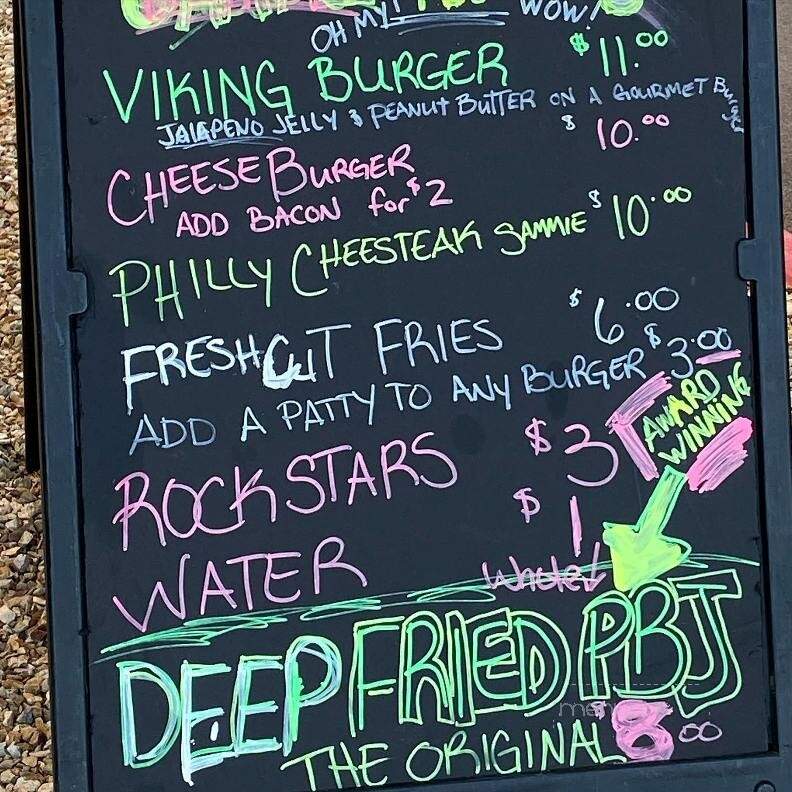 OH MY! WOW!
VIKING BURGER $11.00
JALAPENO JELLY & PEANUT BUTTER ON A GOURMET Burger
CHEESE BURGER $10.00
ADD BACON for $2
PHILLY CHEESTEAK SAMMIE $10.00
FRESH CUT FRIES $6.00
ADD A PATTY TO ANY BURGER $3.00
AWARD
WINNING
ROCKSTARS $3
WATER $1
DEEP FRIED PBJ
THE ORIGINAL $8.00